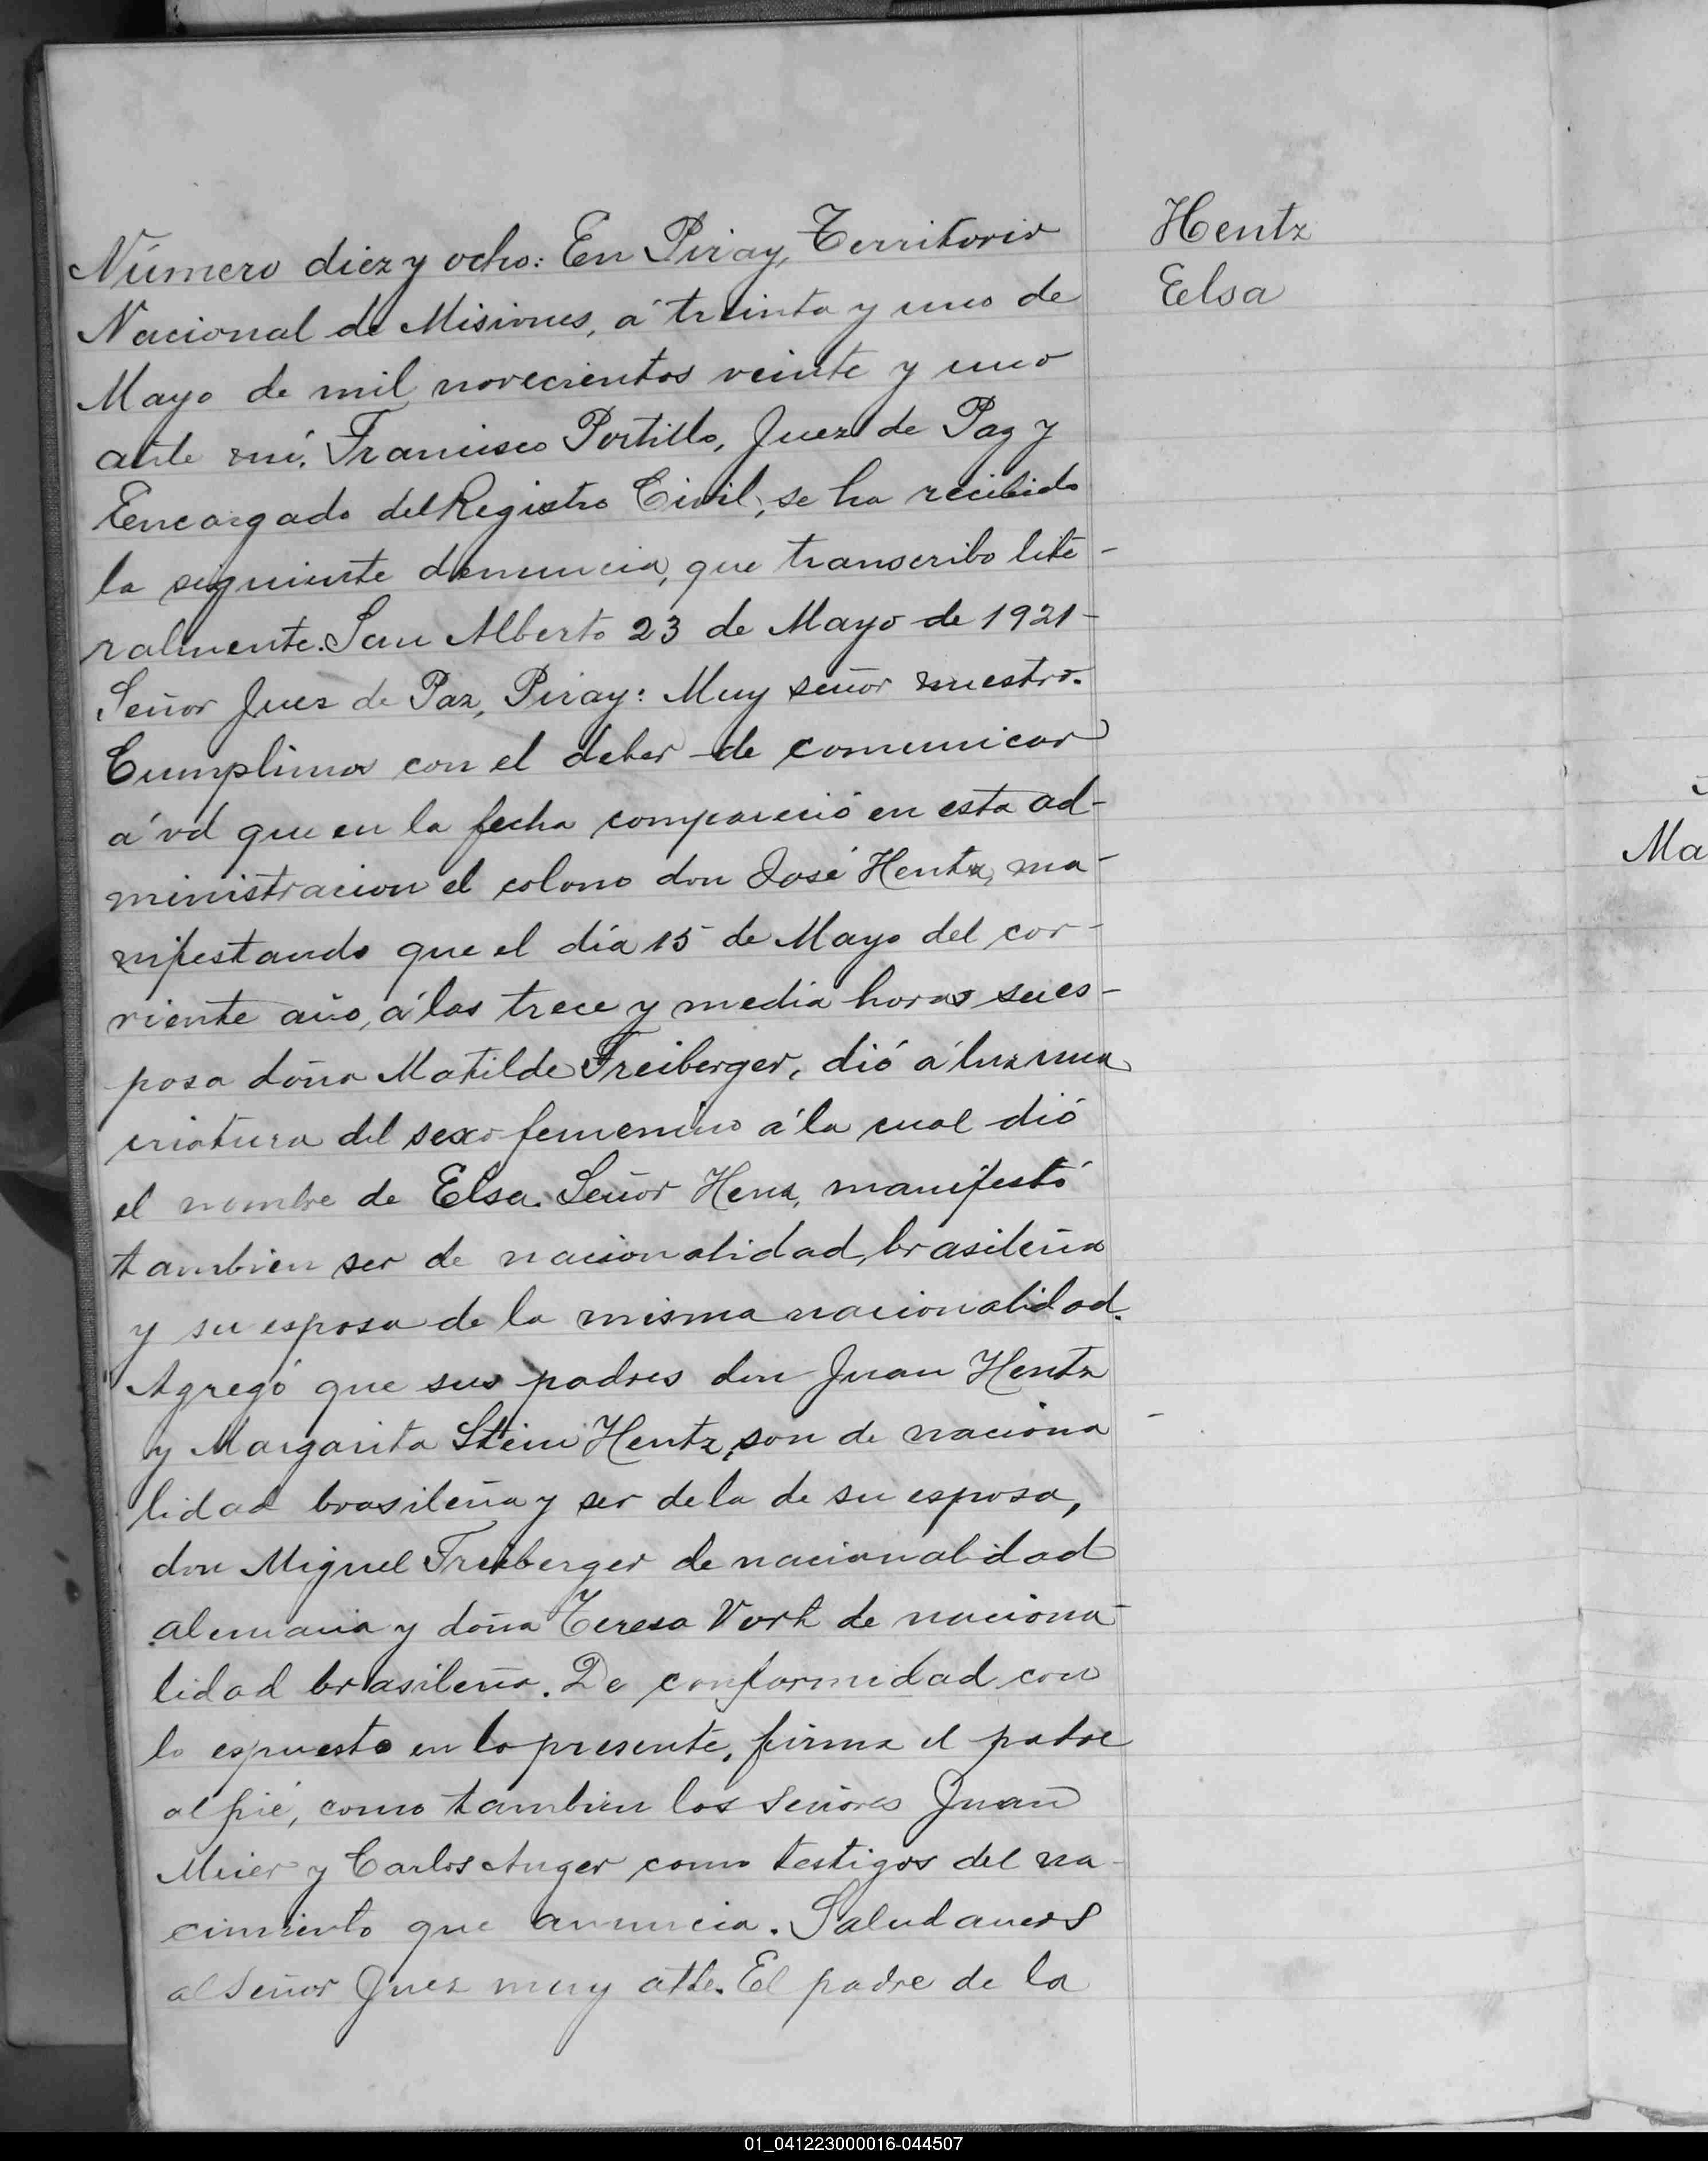 Hentz
Elsa
Número diez y ocho: En Piray, Territorio
Nacional de Misiones, á treinta y uno de
Mayo de mil novecientos veinte y uno
ante mí, Francisco Portillo, Juez de Paz y
Encargado del Registro Civil, se ha recibido
la siguiente denuncia, que transcribo lite-
ralmente. San Alberto 23 de Mayo de 1921-
Señor Juez de Paz, Piray: Muy señor nuestro.
Cumplimos con el deber de comunicar
á vd que en la fecha compareció en esta ad-
ministracion el colono don José Hentz, ma-
nifestando que el día 15 de Mayo del cor-
riente año, á las trece y media horas su es-
posa doña Matilde Freiberger, dió á luz una
criatura del sexo femenino á la cual dió
el nombre de Elsa. Señor Henz, manifestó
tambien ser de nacionalidad brasileña
y su esposa de la misma nacionalidad.
Agregó que sus padres don Juan Hentz
y Margarita Stein Hentz, son de naciona-
lidad brasileña y ser de la de su esposa,
don Miguel Freiberger de nacionalidad
alemana y doña Teresa Vork de naciona-
lidad brasileña. De conformidad con
lo espuesto en la presente, firma el padre
al pié, como tambien los Señores Juan
Meier y Carlos Auger como testigos del na-
cimiento que anuncia. Saludamos
al Señor Juez muy atte. El padre de la
Ma
01_041223000016-044507